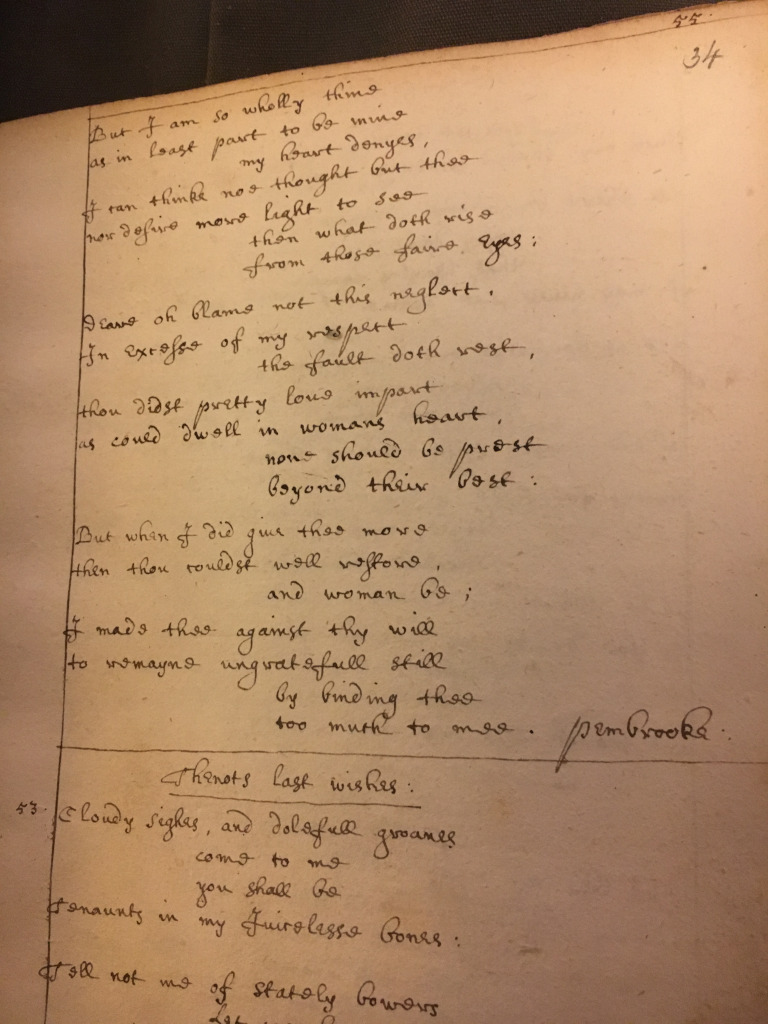 55.
34
But I am so wholly thine
as in least part to be mine
my heart denyes,
I can thinke noe thought but thee
nor desire more light to see
then what doth rise
from those faire Eyes:
Deare oh blame not this neglect,
In Excesse of my respect
the fault doth rest,
thou didst pretty love impart
as could dwell in womans heart,
none should be prest
beyond their best:
But when I did give thee more
then thou couldst well restore,
and woman be;
I made thee against thy will
to remayne ungratefull still
by binding thee
too much to mee. Pembrooke:
Thenots last wishes:
53. Cloudy sighes, and dolefull groanes
come to me
you shall be
Tenaunts in my Juicelesse bones:
Tell not me of stately bowers